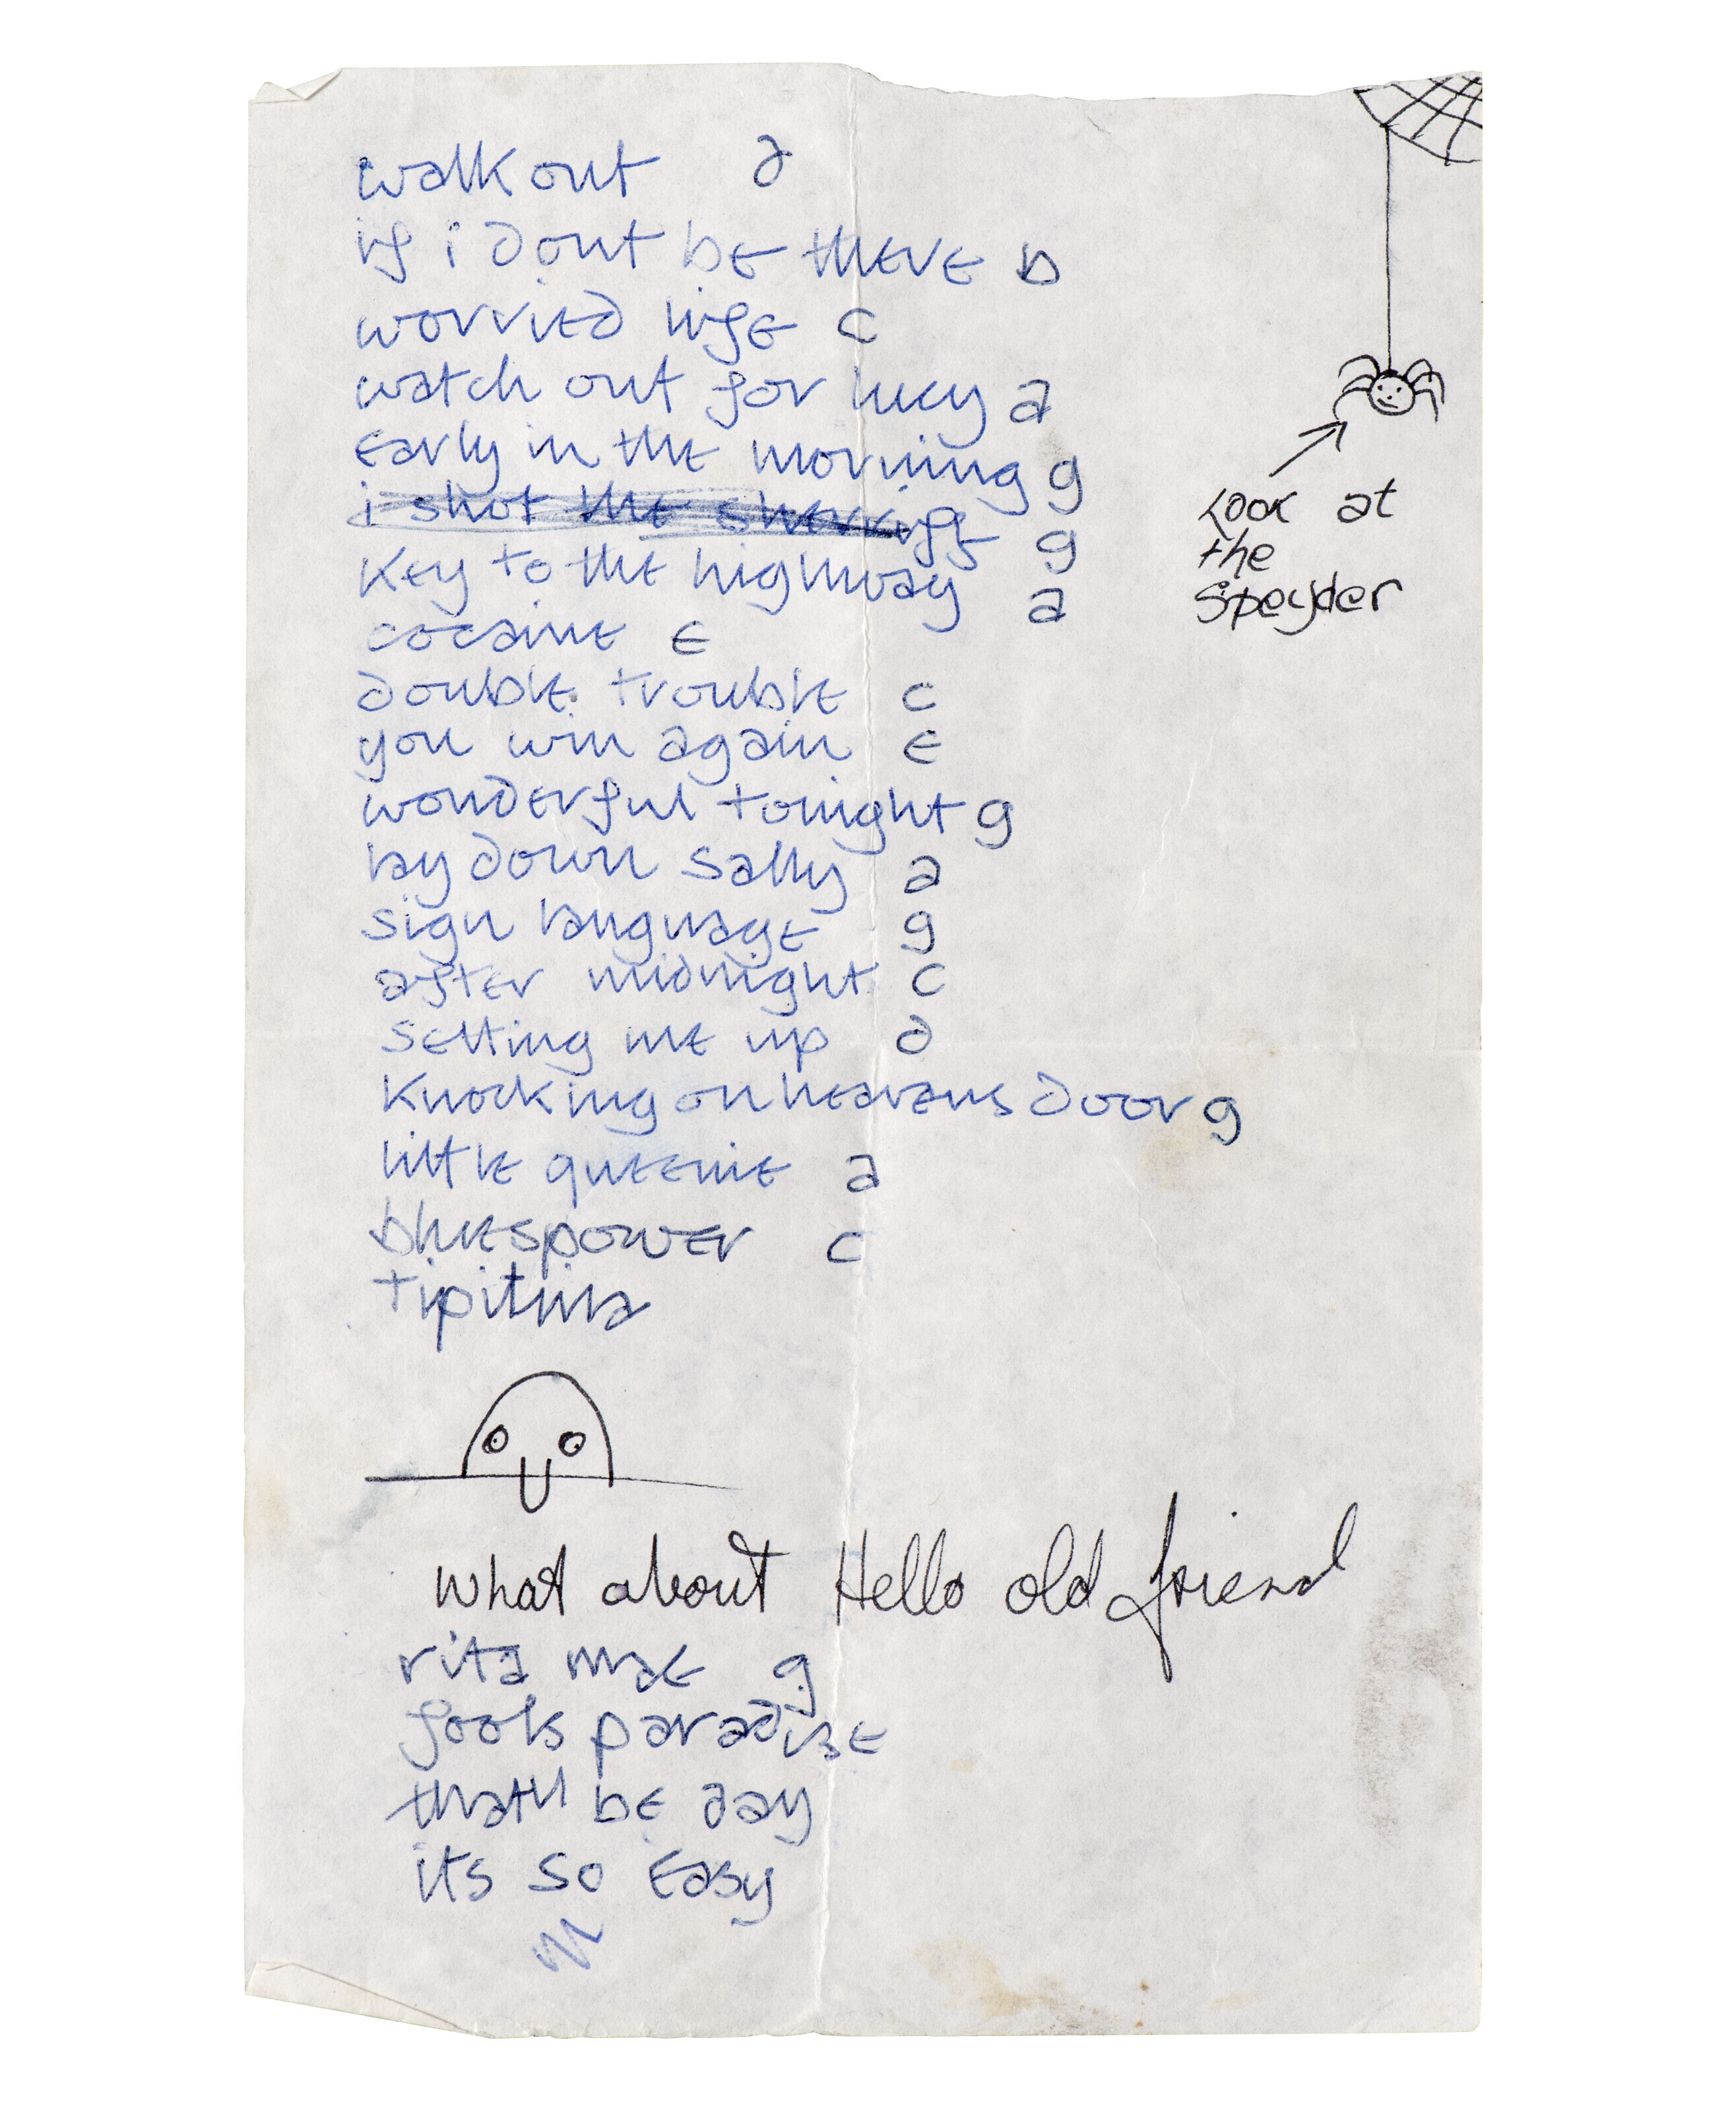 walk out d
if i dont be there b
worried life c
watch out for lucy a
early in the morning g
i shot the sherriff g
key to the highway a
cocaine e
double trouble c
you win again e
wonderful tonight g
lay down sally a
sign language g
after midnight c
setting me up d
knocking on heavens door g
little queenie a
bluespower c
tipitina
what about Hello old friend
rita mae g
fools paradise
thatll be day
its so easy
Look at
the
Speyder